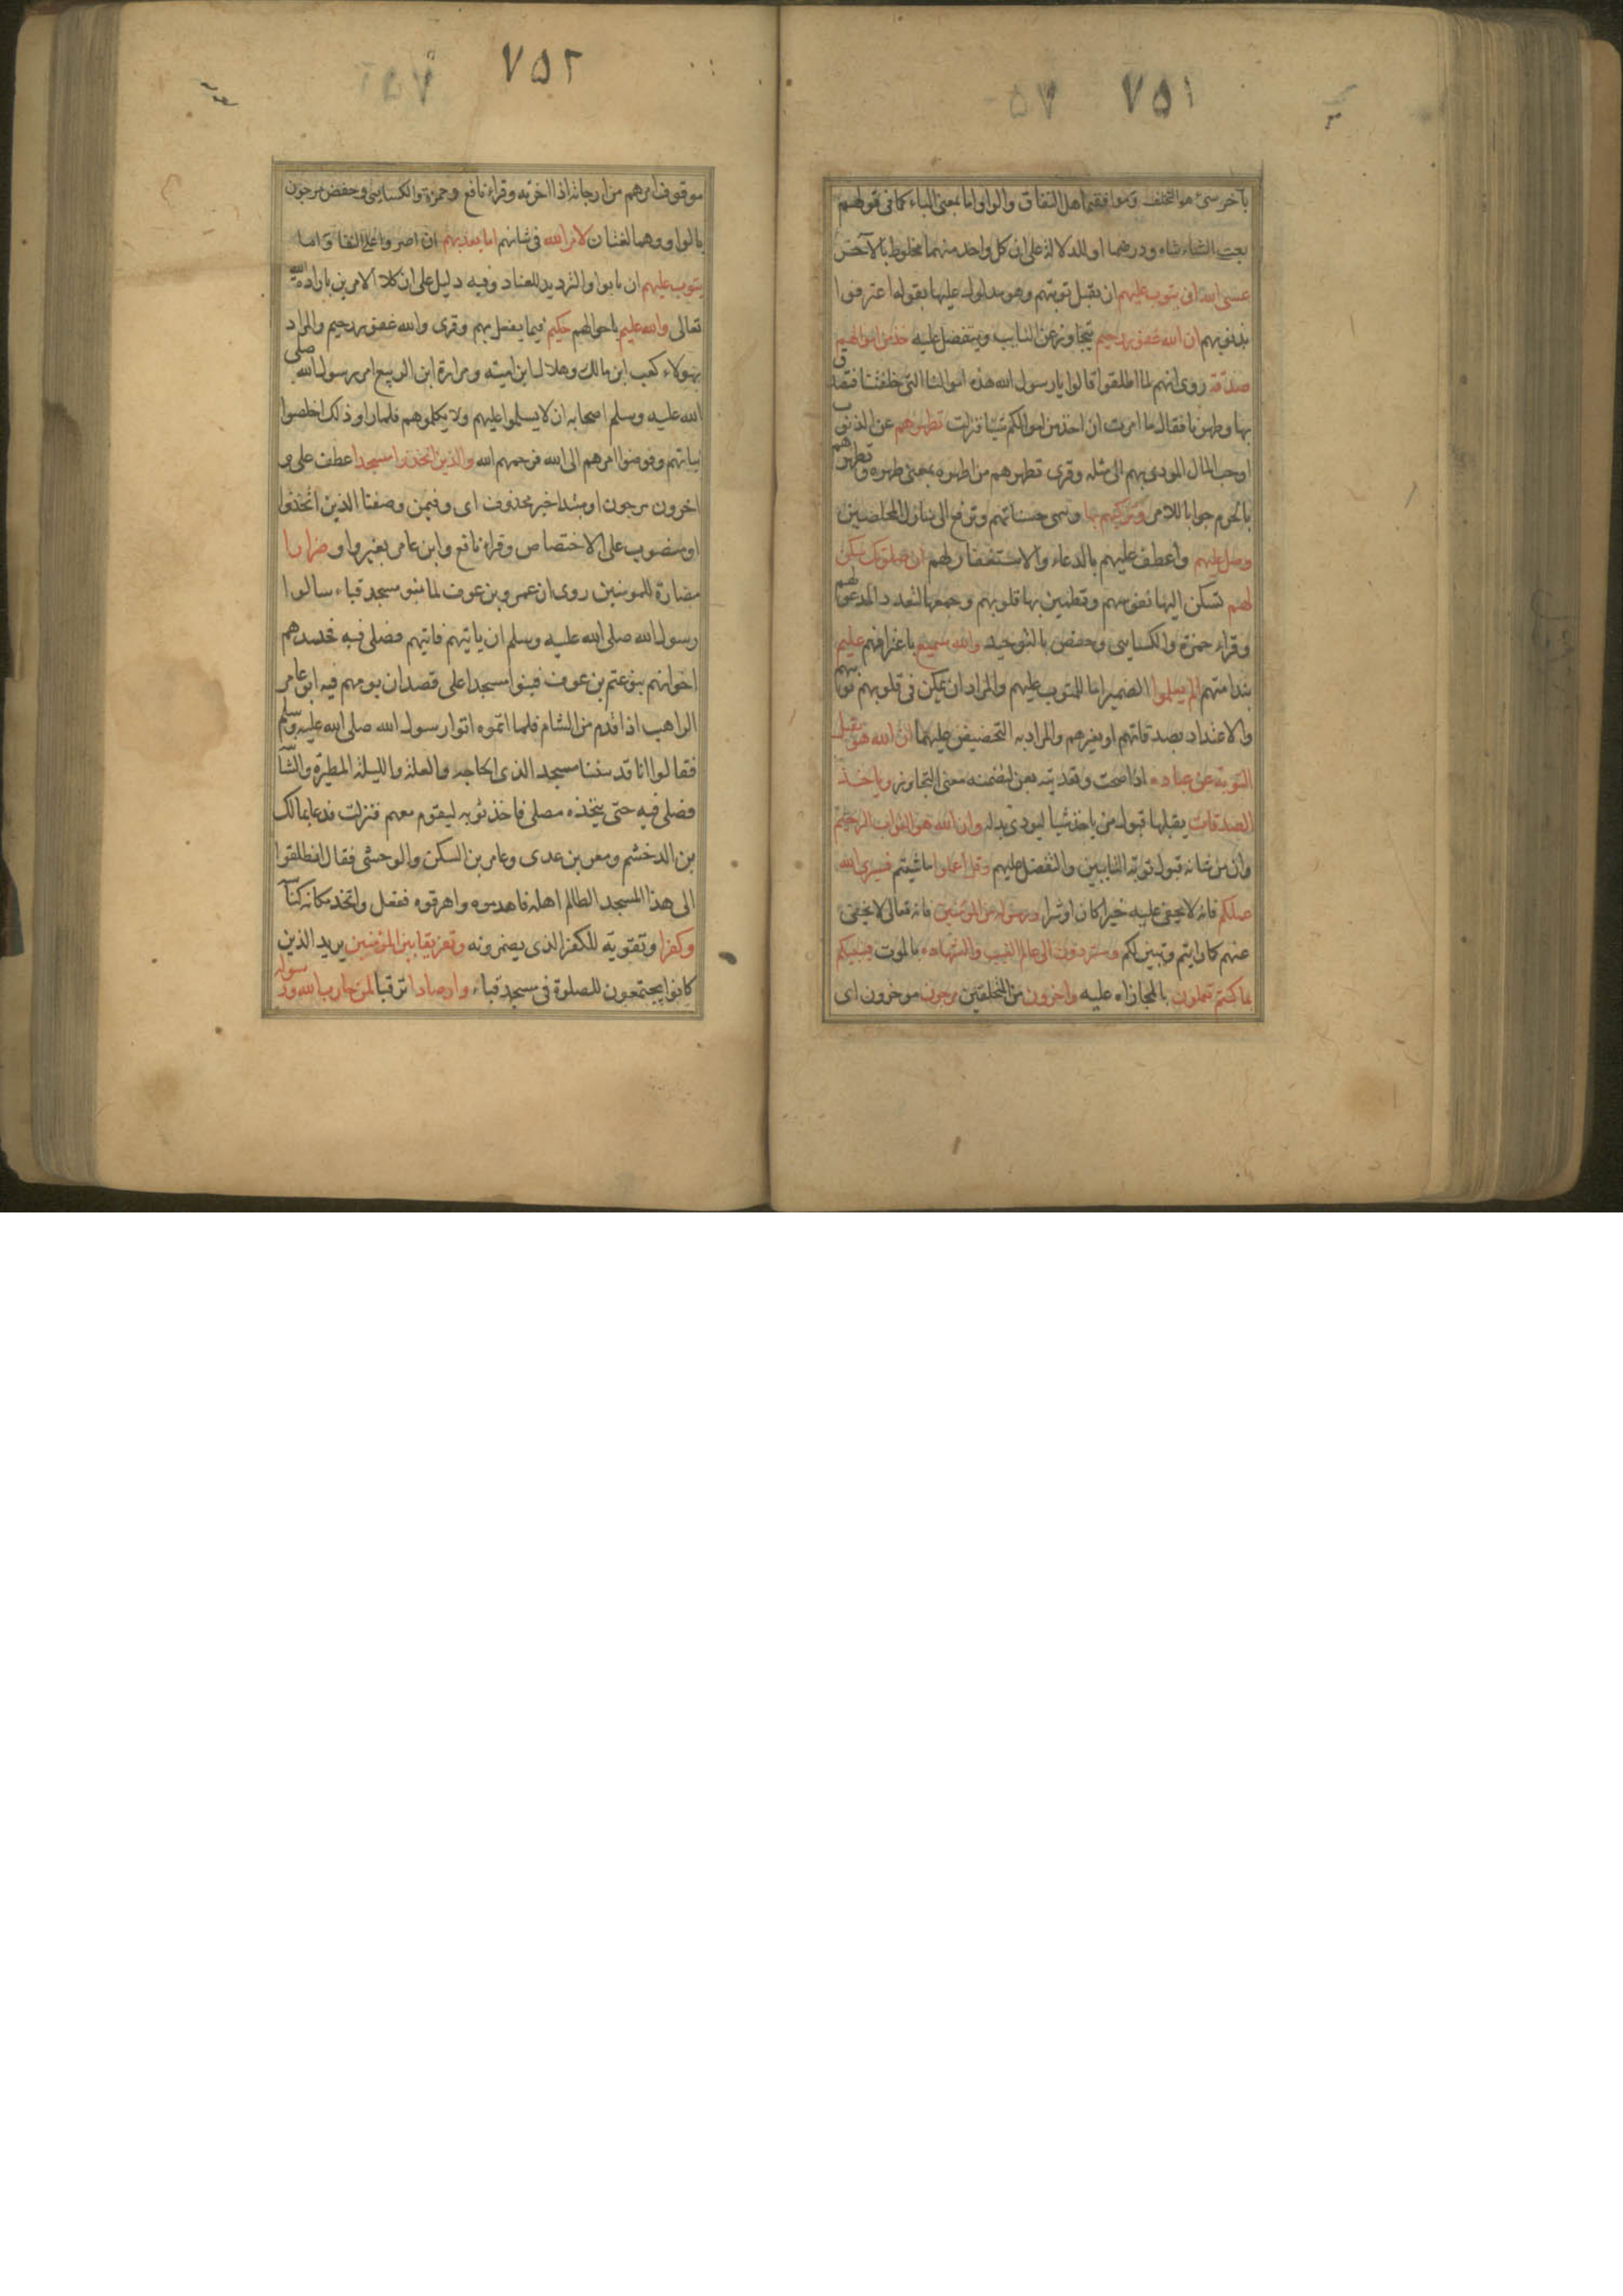 ٧٥١
بآخر سئ هو التخلف وموافقة اهل النفاق والواو اما بمعنى الباء كما فى قولهم
بعت الشاء شاه ودرهما او للدلالة على ان كل واحد منهما مخلوط بالآخر
عسى الله ان يتوب عليهم ان يقبل توبتهم وهو مدلول عليها بقوله اعترفوا
بذنوبهم ان الله غفور رحيم يتجاوز عن التايب ويتفضل عليه خذ من اموالهم
صدقة روى انهم لما اطلقوا قالوا يارسول الله هذه اموالنا التى خلفتنا فتصدق
بها وطهرنا فقال ما امرت ان اخذ من اموالكم شيئا فنزلت تطهرهم عن الذنوب
اوحب المال المودى بهم الى مثله وقرى تطهرهم من اطهره بمعنى طهره وتطهرهم
بالجزم جوابا للامر وتزكيهم بها وتنمى حسناتهم وترفع الى منازل المخلصين
وصل عليهم واعطف عليهم بالدعاء والاستغفار لهم ان صلوتك سكن
لهم تسكن اليها نفوسهم وتطمين بها قلوبهم وجمعها لتعدد المدعو لهم
وقراء حمزة والكسايى وحفص بالتوحيد والله سميع باعترافهم عليم
بندامتهم الم يعلموا الضمير اما للمتوب عليهم والمراد ان يمكن فى قلوبهم توبتهم
والاعتداد بصدقاتهم او بغيرهم والمراد به التحضيض عليهما ان الله هو يقبل
التوبة عن عباده اذا صحت وتعديته بعن لتضمنه معنى التجاوز وياخذ
الصدقات يقبلها قبول من ياخذ شيا ليودى بدله وان الله هو التواب الرحيم
وان من شانه قبول توبة التايبين والتفضل عليهم وقل اعملوا ما شيتم فسيرى الله
عملكم فانه لايخفى عليه خيرا كان او شرا ورسوله والمؤمنون فانه تعالى لايخفى
عنهم كما رايتم وتبين لكم وستردون الى عالم الغيب والشهاده بالموت فينبيكم
بما كنتم تعملون بالمجازاه عليه واخرون من المتخلفين مرجون موخرون اى
٧٥٢
موقوف امرهم من ارجاته اذا اخرته وقراء نافع وحمزة والكسايى وحفص مرجون
بالواو وهما لغتان لامر الله فى شانهم اما يعذبهم ان اصروا على النفاق واما
يتوب عليهم ان تابوا والترديد للعناد وفيه دليل على ان كلا الامرين باراده الله
تعالى والله عليم باحوالهم حكيم فيما يفعل بهم وقرى والله غفور رحيم والمراد
بهولاء كعب ابن مالك وهلال ابن اميته ومرارة ابن الربيع امر رسول الله صلى
الله عليه وسلم اصحابه ان لا يسلموا عليهم ولا يكلموهم فلما راو ذلك اخلصوا
نياتهم وفوضوا امرهم الى الله فرحمهم الله والذين اتخذوا مسجدا عطف على و
اخرون مرجون او مبتدا خبر محذوف اى وفيمن وصفنا الذين اتخذوا
او منصوب على الاختصاص وقراء نافع وابن عامر بغير واو ضرارا
مضارة للمومنين روى ان عمرو بن عوف لما بنو مسجد قباء سالوا
رسول الله صلى الله عليه وسلم ان ياتيهم فاتيهم فصلى فيه فحسدهم
اخوانهم بنو غنم بن عوف فبنوا مسجدا على قصد ان يومهم فيه ابو عامر
الراهب اذا قدم من الشام فلما اتموه اتوا رسول الله صلى الله عليه وسلم
فقالوا انا قد بنينا مسجد الذى الحاجه والعلة والليلة المطيرة والشآ
فصلى فيه حتى يتخذه مصلى فاخذ ثوبه ليقوم معهم فنزلت فدعا بمالك
بن الدخشم ومعن بن عدى وعامر بن السكن والوحشى فقال انطلقوا
الى هذا المسجد الظالم اهله فاهدموه واهرقوه ففعل واتخذ مكانه كناسة
وكفرا وتقوية للكفر الذى يضمرونه وتفريقا بين المؤمنين يريد الذين
كانوا يجتمعون للصلوة فى مسجد قباء وارصادا ترقبا لمن حارب الله ورسوله